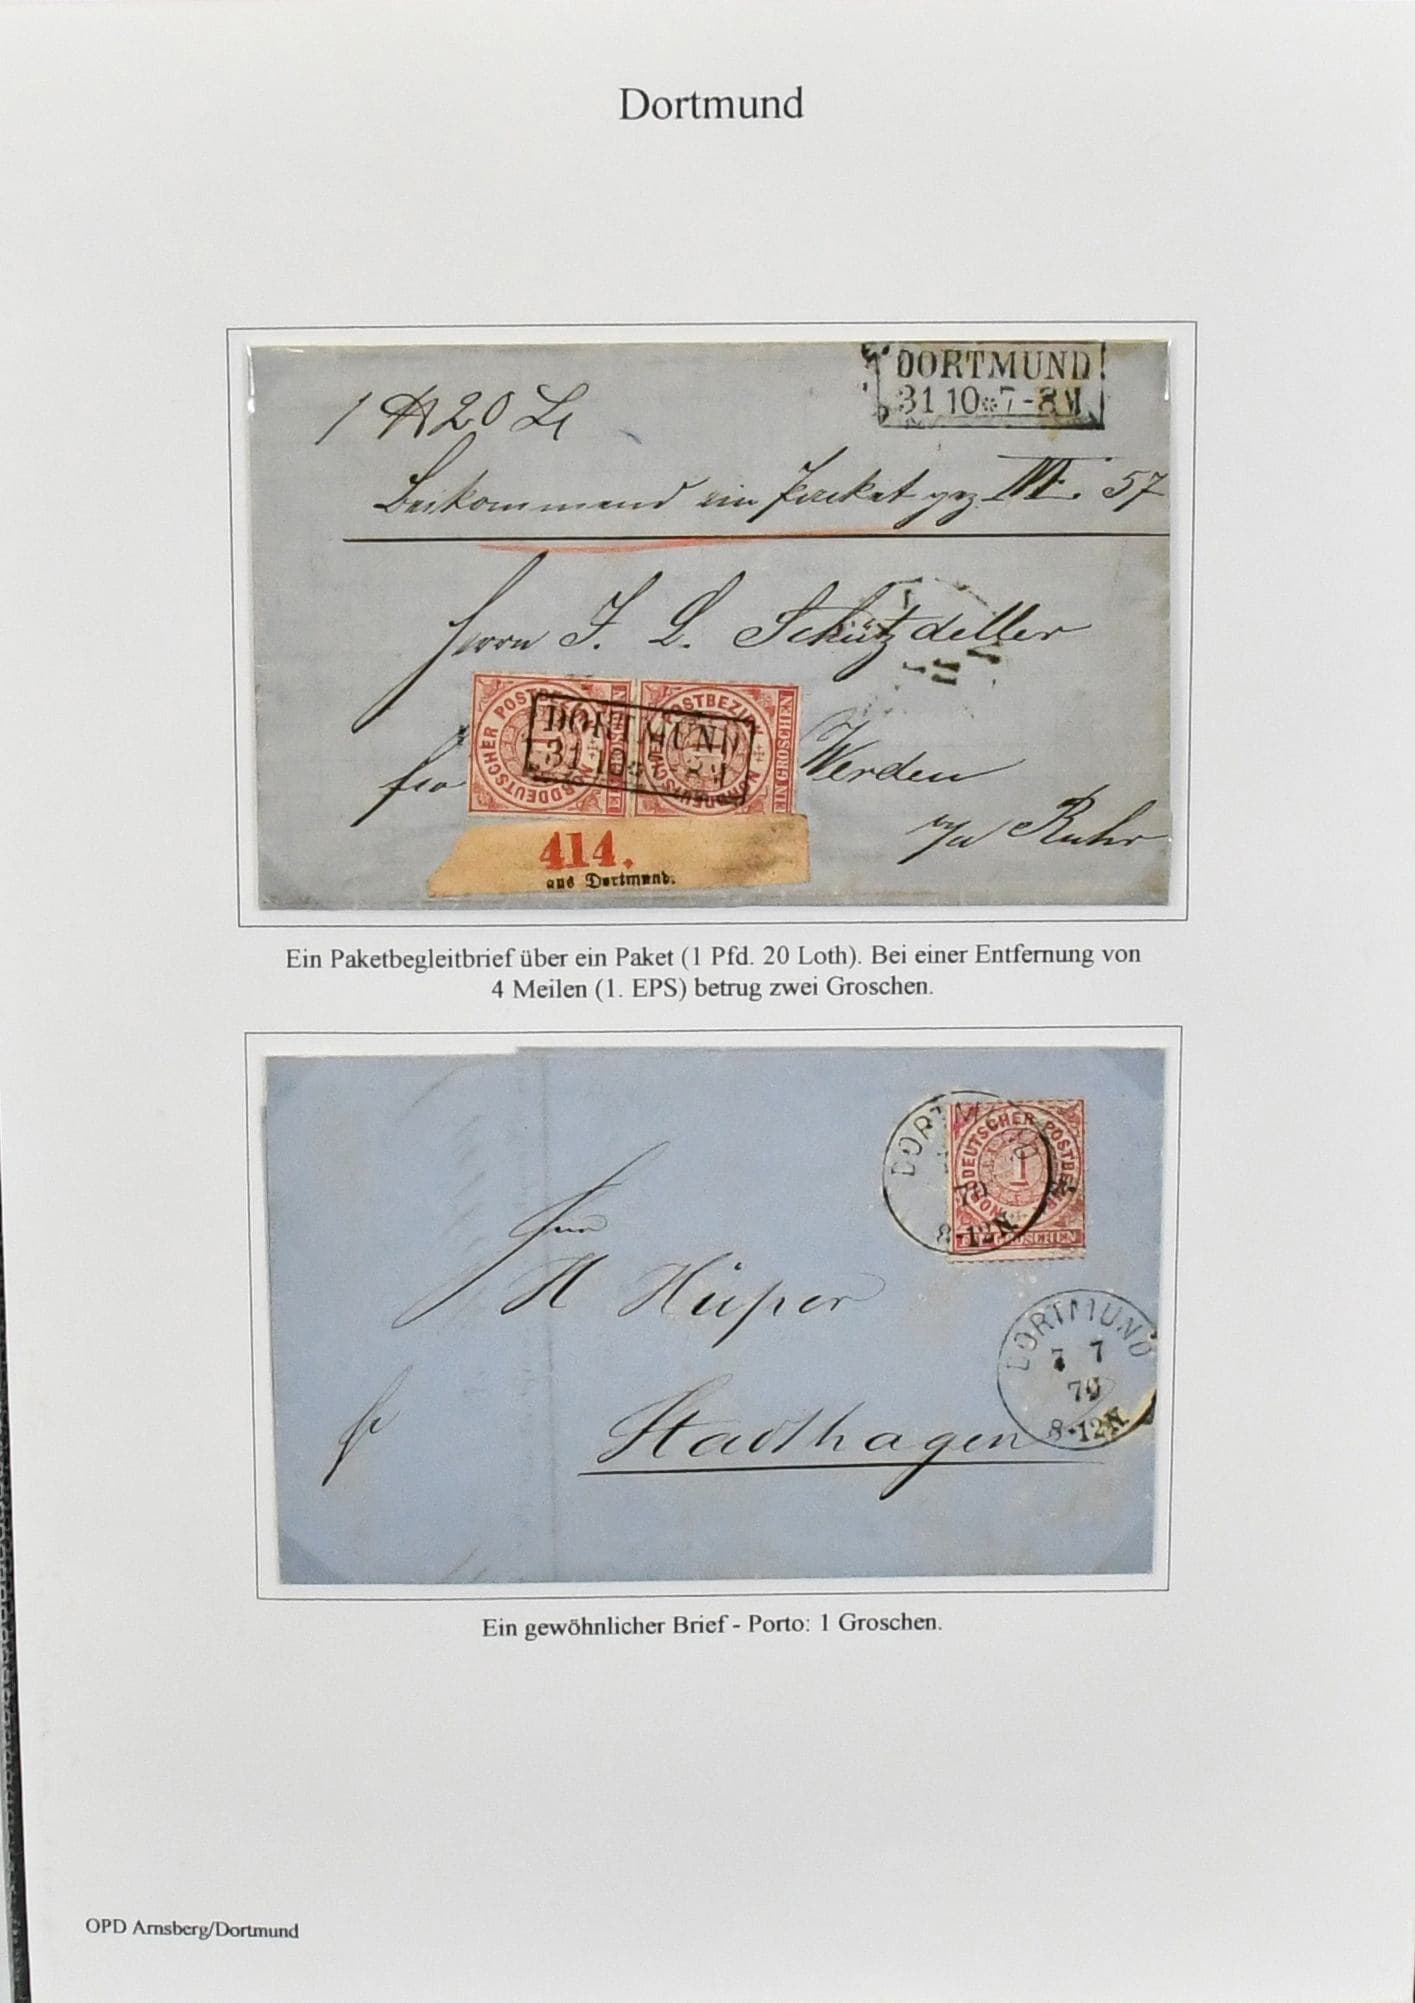 Dortmund
DORTMUND
31 10 7-8M
1 ℔ 20 Lt
Beikommend ein Packet gez III. 57
Herrn F. L. Schützdeller
NORDDEUTSCHER POSTBEZIRK
GROSCHEN
DORTMUND
31 10
fco
Werden
a/d Ruhr
414.
aus Dortmund.
Ein Paketbegleitbrief über ein Paket (1 Pfd. 20 Loth). Bei einer Entfernung von
4 Meilen (1. EPS) betrug zwei Groschen.
DORTMUND
8-12N
NORDDEUTSCHER POSTBEZIRK
1
EIN GROSCHEN
Herrn
H Hüper
DORTMUND
7 7
70
8-12N
fr
Stadthagen
Ein gewöhnlicher Brief - Porto: 1 Groschen.
OPD Arnsberg/Dortmund